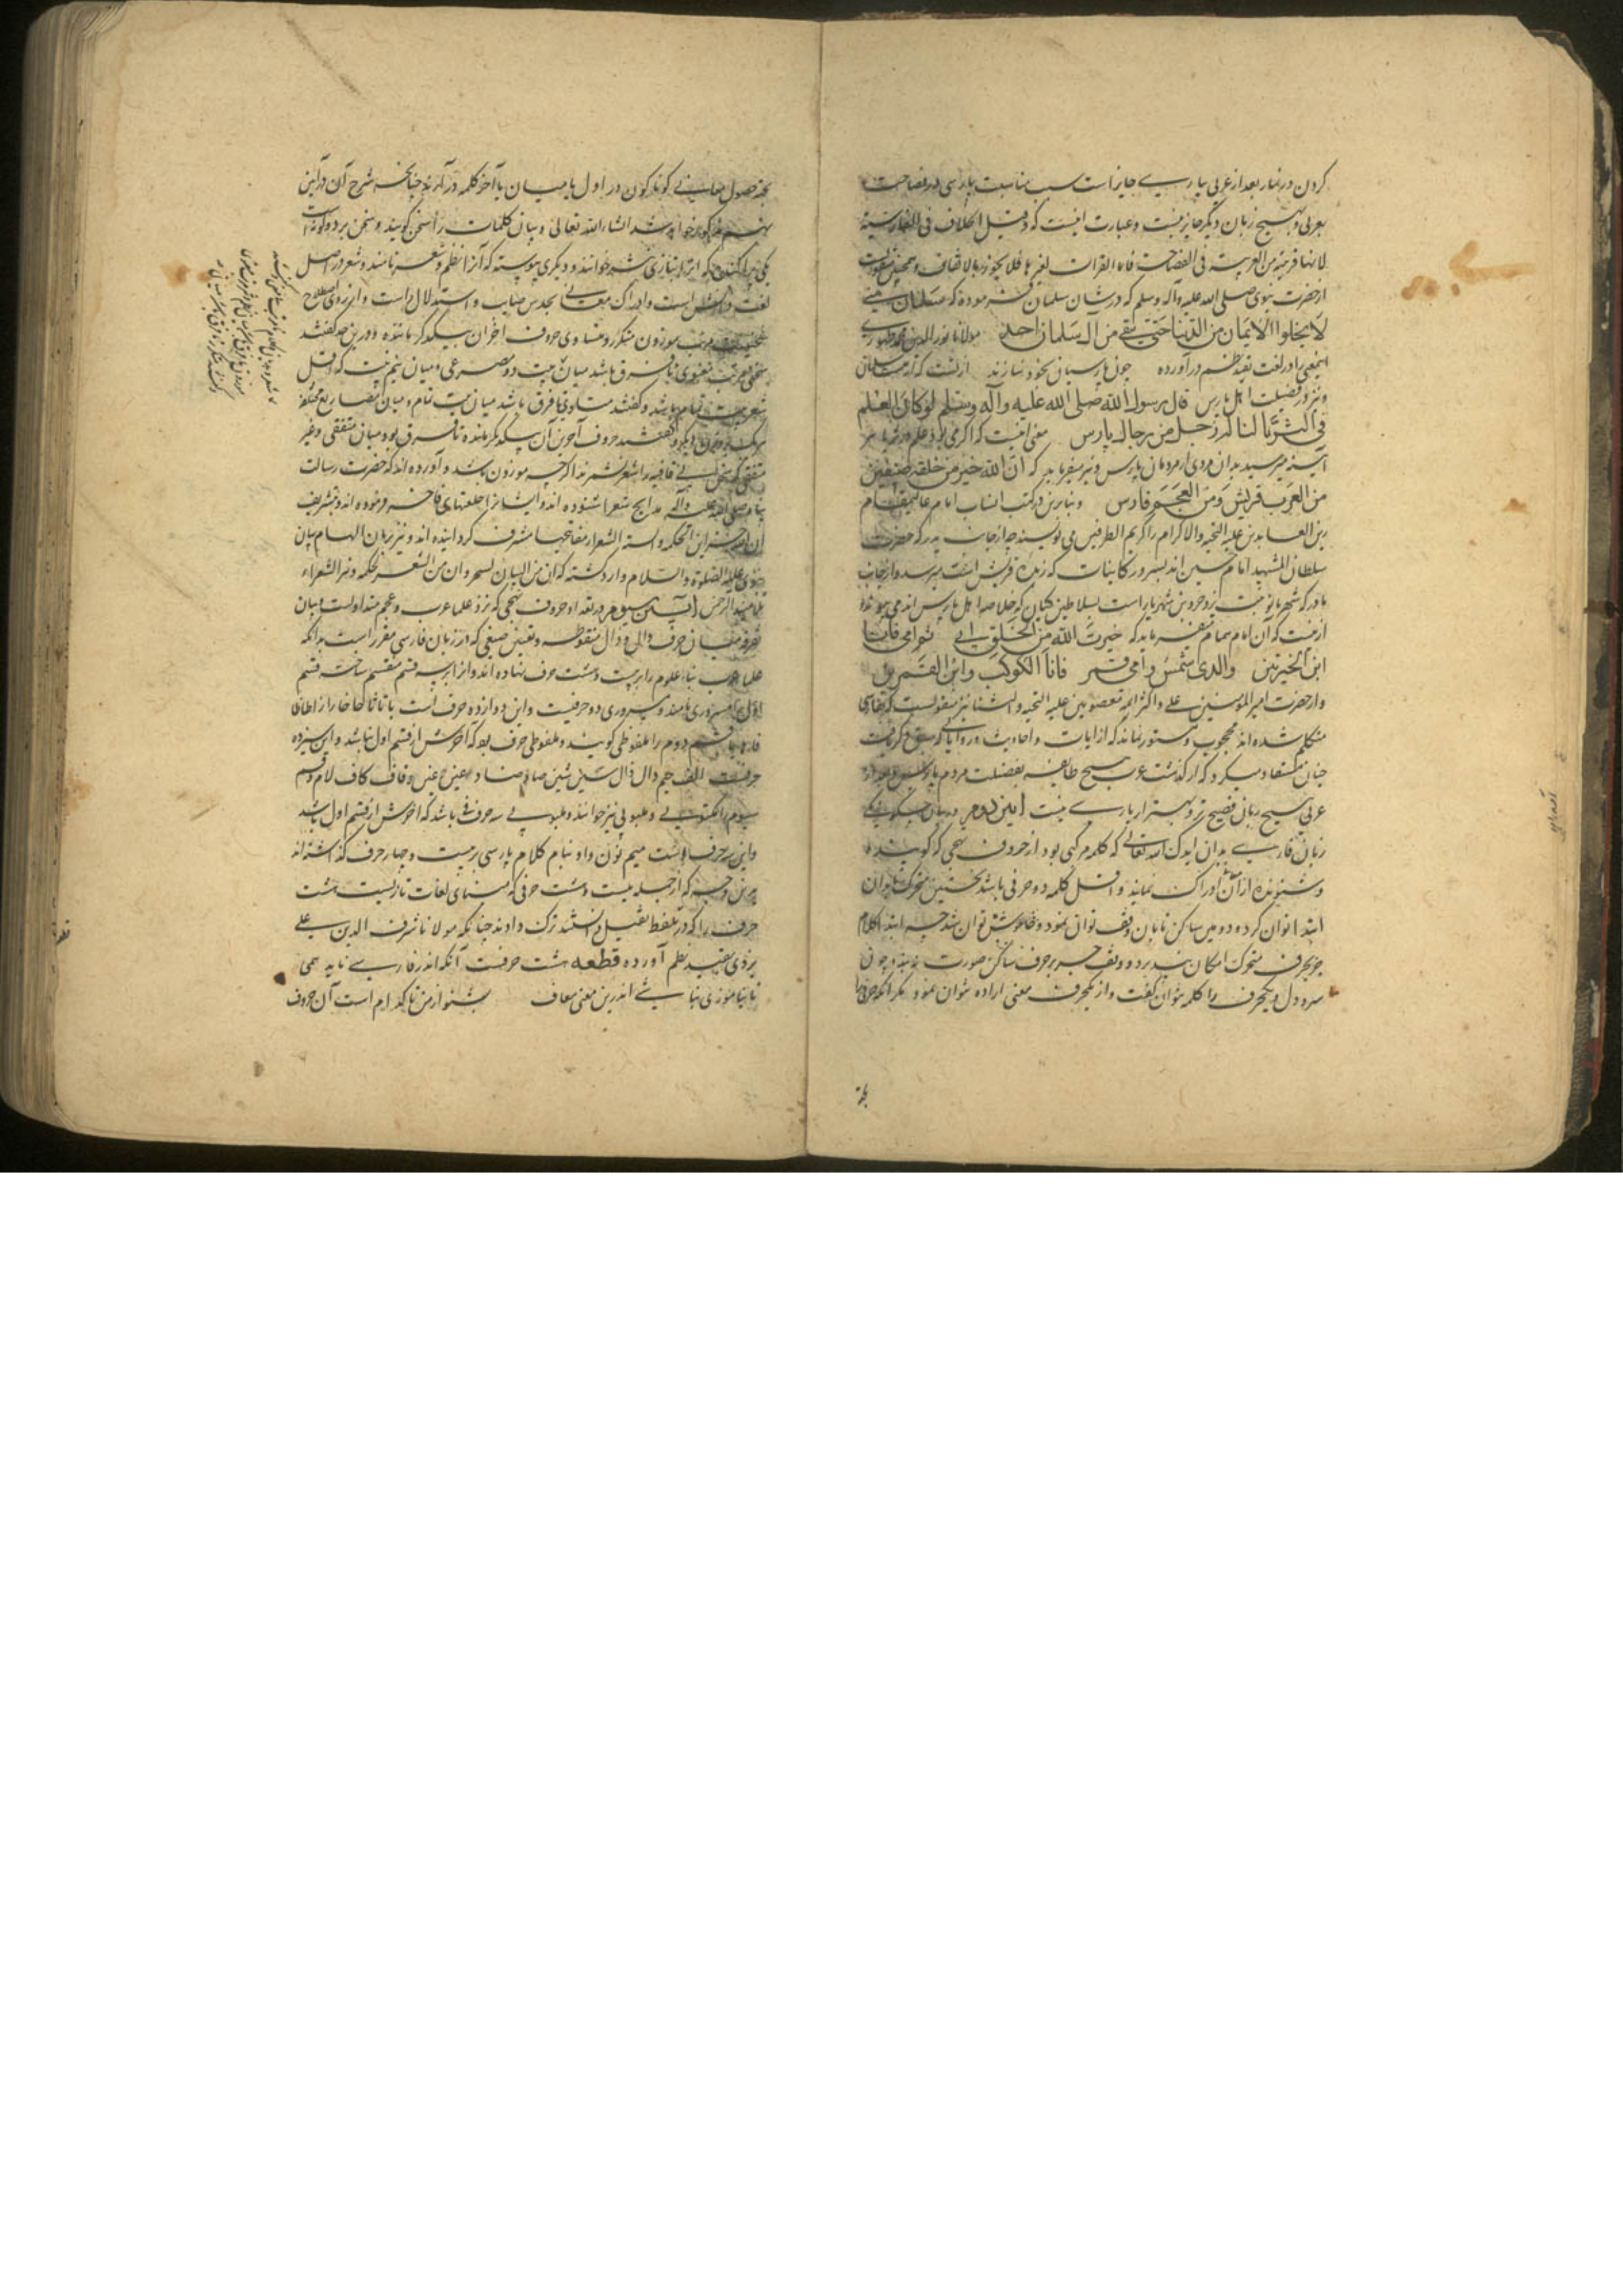 کردن در نماز بعد از عربی بپارسی جایز است بسبب مناسبت پارسی در فصاحت
بعربی و بهیچ زبان دیگر جایز نیست و عبارت اینست که و قیل الخلاف فی الفارسیة
لانها قریبة من العربیة فی الفصاحة فاما القرات لغیرها فلا یجوز بالاتفاق و همچنین
از حضرت نبوی صلی الله علیه و آله و سلم که در شان سلمان فرموده که سلمان منی
لا یخلوا الایمان من الدنیا حتی بقی من آل سلمان احد مولانا نور الدین
اینمعنی را در لغت بقید نظم درآورده چون پارسیان بخود ننازند از لذت که از سلمان
و نیز در فضیلت اهل پارس قال رسول الله صلی الله علیه و آله و سلم لو کان العلم
فی الثریا لناله رجل من رجال پارس معنی اینست که اگر می بود علم در ثریا هر
آینه میرسید بدان مردی از مردمان پارس و نیز میفرماید که ان الله خیر من خلقه صنفین
من العرب قریش و من العجم فارس و بنابرین در کتب انساب امام عالیمقام
زین العابدین علیه التحیه و الاکرام را کریم الطرفین می نویسند چه از جانب پدر که حضرت
سلطان الشهید امام حسین اند بسرور کاینات که زبده قریش است میرسد و از جانب
مادر که شهربانو بنت یزدجرد بن شهریار است بسلاطین کیان که خلاصه اهل پارس اند می پیوندد
ازینست که آن امام همام میفرماید که خیرة الله من الخلق ابی ثم امی فانا
ابن الخیرتین والدی شمس و امی قمر فانا الکوکب و ابن القمرین
و از حضرت امیر المومنین علی و اکثر ائمه معصومین علیه التحیه و الثنا نیز منقولست که بفارسی
متکلم شده اند محجوب و مستور نماند که از آیات و احادیث و روایاتی که سبق ذکر یافت
چنان مستفاد میگردد که از گذشت عرب هیچ طایفه بفضیلت مردم پارس و بعد از
عربی هیچ زبان فصیح تر و بهتر از پارسی نیست آیین دوم در بیان چگونگی
زبان فارسی بدان ایدک الله تعالی که کلمه مرکبی بود از حروف تهجی که گوینده
و شنونده از آن ادراک نمایند و اقل کلمه دو حرفی باشد نخستین متحرک تا بدان
ابتدا توان کرد و دومین ساکن تا بان وقف توان نمود و خاموش توان شد چه ابتدا کلام
جز بحرف متحرک امکان نپذیرد و وقف جز بر حرف ساکن صورت نبندد چون
سر و دل و یکحرف را کلمه نتوان گفت و از یکحرف معنی اراده نتوان نمود مگر آنکه حرفی را
بجهة
بجهة حصول معانی گوناگون در اول یا میان یا آخر کلمه در آرند چنانچه شرح آن در آیین
نهم مذکور خواهد شد انشاء الله تعالی و بیان کلمات را سخن گویند و سخن بر دو گونه است
یکی پراکنده که انرا بتازی نثر خوانند و دیگری پیوسته که آنرا نظم و شعر نامند و شعر در اصل
لغت دانش است و ادراک معانی بحدس صایب و استدلال راست و از روی اصطلاح
سخنیست مرتب موزون متکرر متساوی حروف اخران بیکدگر ماننده و درین حد گفتند
سخنی مرتب معنوی تا فرق باشد میان بیت دو مصرعی و میان نیم بیت که اقل
شعر بیت تمام باشد و گفتند متساوی تا فرق باشد میان بیت تمام و میان مصاریع مختلف
هریک بر وزن دیگر و گفتند حروف آخرین آن بیکدگر مانده تا فرق بود میان مقفی و غیر
مقفی که سخن بی قافیه را شعر نشمرند اگرچه موزون باشد و آورده اند که حضرت رسالت
پناه صلی الله علیه و آله مدایح شعرا شنوده اند و ایشانرا خلعتهای فاخره فرموده اند و بتشریف
ان لله خزاین الحکمه و السنة الشعرا مفاتحها مشرف گردانیده اند و نیز بزبان الهام بیان
نبوی علیه الصلوة و السلام وارد گشته که ان من البیان لسحرا و ان من الشعر لحکمه و نیز الشعراء
تلامیذ الرحمن آیین سیوم در تعداد حروف تهجی که نزد علما عرب و عجم متداولست و بیان
تفرقه میان حرف دال و ذال منقوطه و تعیین صیغی که در زبان فارسی مقرر است بدانکه
علما عرب بناء علوم را بر بیست و هشت حرف نهاده اند و انرا بر سه قسم منقسم ساخته قسم
اول را مسروری نامند و مسروری دو حرفیست و این دوازده حرف است با تا ثا حا خا را زا طا ظا
فا ها یا قسم دوم را ملفوظی گویند و ملفوظی حرفی بود که آخرش از قسم اول نباشد و این سیزده
حرفست الف جیم دال ذال سین شین صاد ضاد عین غین قاف کاف لام و قسم
سیوم را مکتوبی و ملبوبی نیز خوانند و ملبوبی سه حرفی باشد که اخرش از قسم اول باشد
و این سه حرف است میم نون واو بنام کلام پارسی بر بیست و چهار حرف گذاشته اند
برین وجه که از جمله بیست و هشت حرفی که مبنای لغات تازیست هشت
حرف را که در تلفظ ثقیل دانستند ترک دادند چنانکه مولانا شرف الدین علی
یزدی بقید نظم آورده قطعه هشت حرفست آنکه اندر فارسی ناید همی
تا نیاموزی نباشی اندرین معنی معاف بشنو از من تا کدام است آن حروف